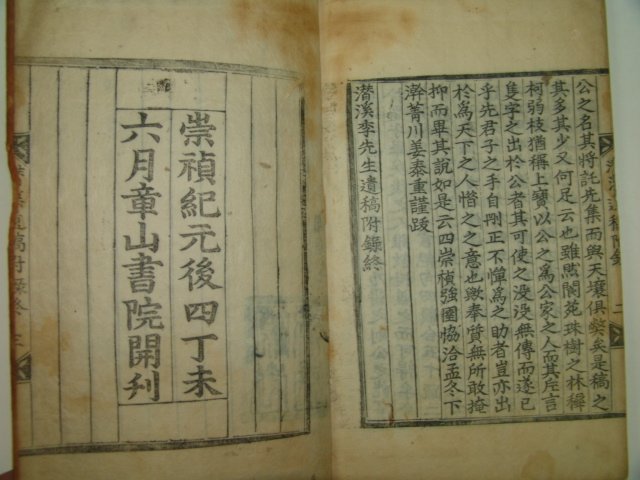 公之名其將託先集而與天壤俱獘矣是稿之
其多其少又何足云也雖然閬苑珠樹之林稱
柯弱枝猶稱上寶以公之爲公家之人而其斥言
隻字之出於公者其可使之没没無傳而遂已
乎先君子之手自刪正不憚爲之助者豈亦出
於爲天下之人惜之之意也歟奉質無所敢掩
抑而畢其說如是云四崇禎強圉恊洽孟冬下
澣菁川姜泰重謹跋
潛溪李先生遺稿附錄終
潛溪遺稿附錄
二
崇禎紀元後四丁未
六月章山書院開刋
潛溪遺稿附錄終
三